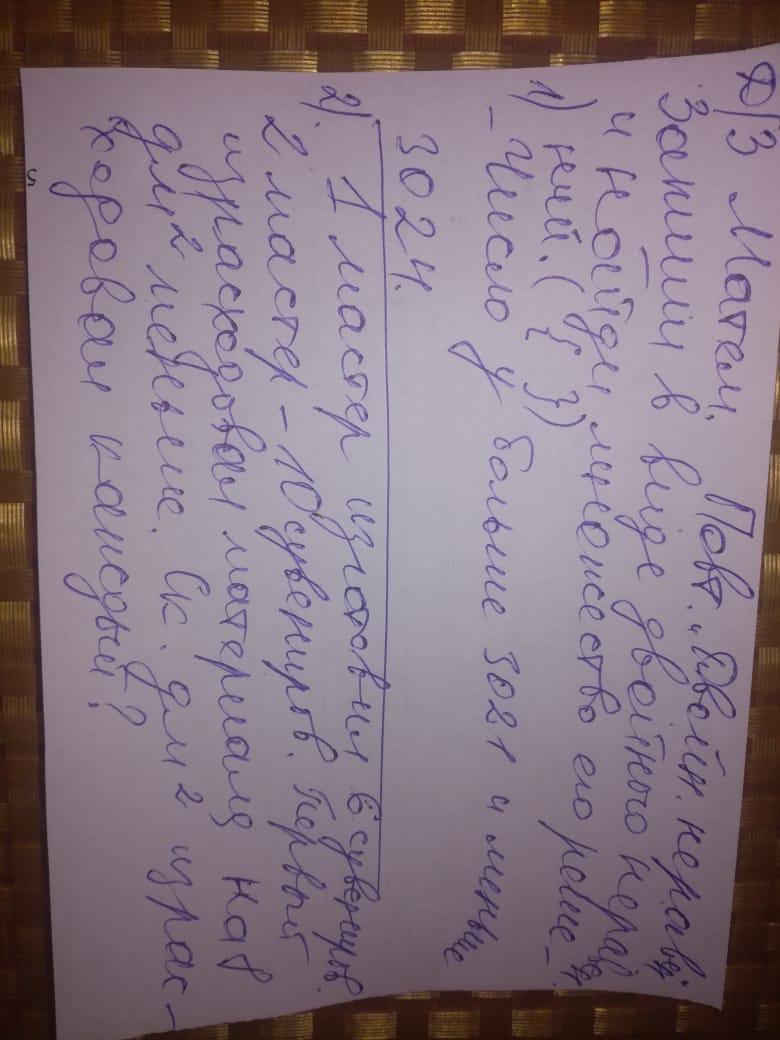 Д/З Матем, Повт. "Двойн. нерав-ва"
Запиши в виде двойного нерав-ва
и найди множество его реше-
1) ний. ({ })
- Число y больше 3021 и меньше
3024.
2). 1 мастер изготовил 6 сувениров.
2 мастер - 10 сувениров. Первый
израсходовал материала на 8
дм² меньше. Ск. дм² израс-
ходовал каждый?
5